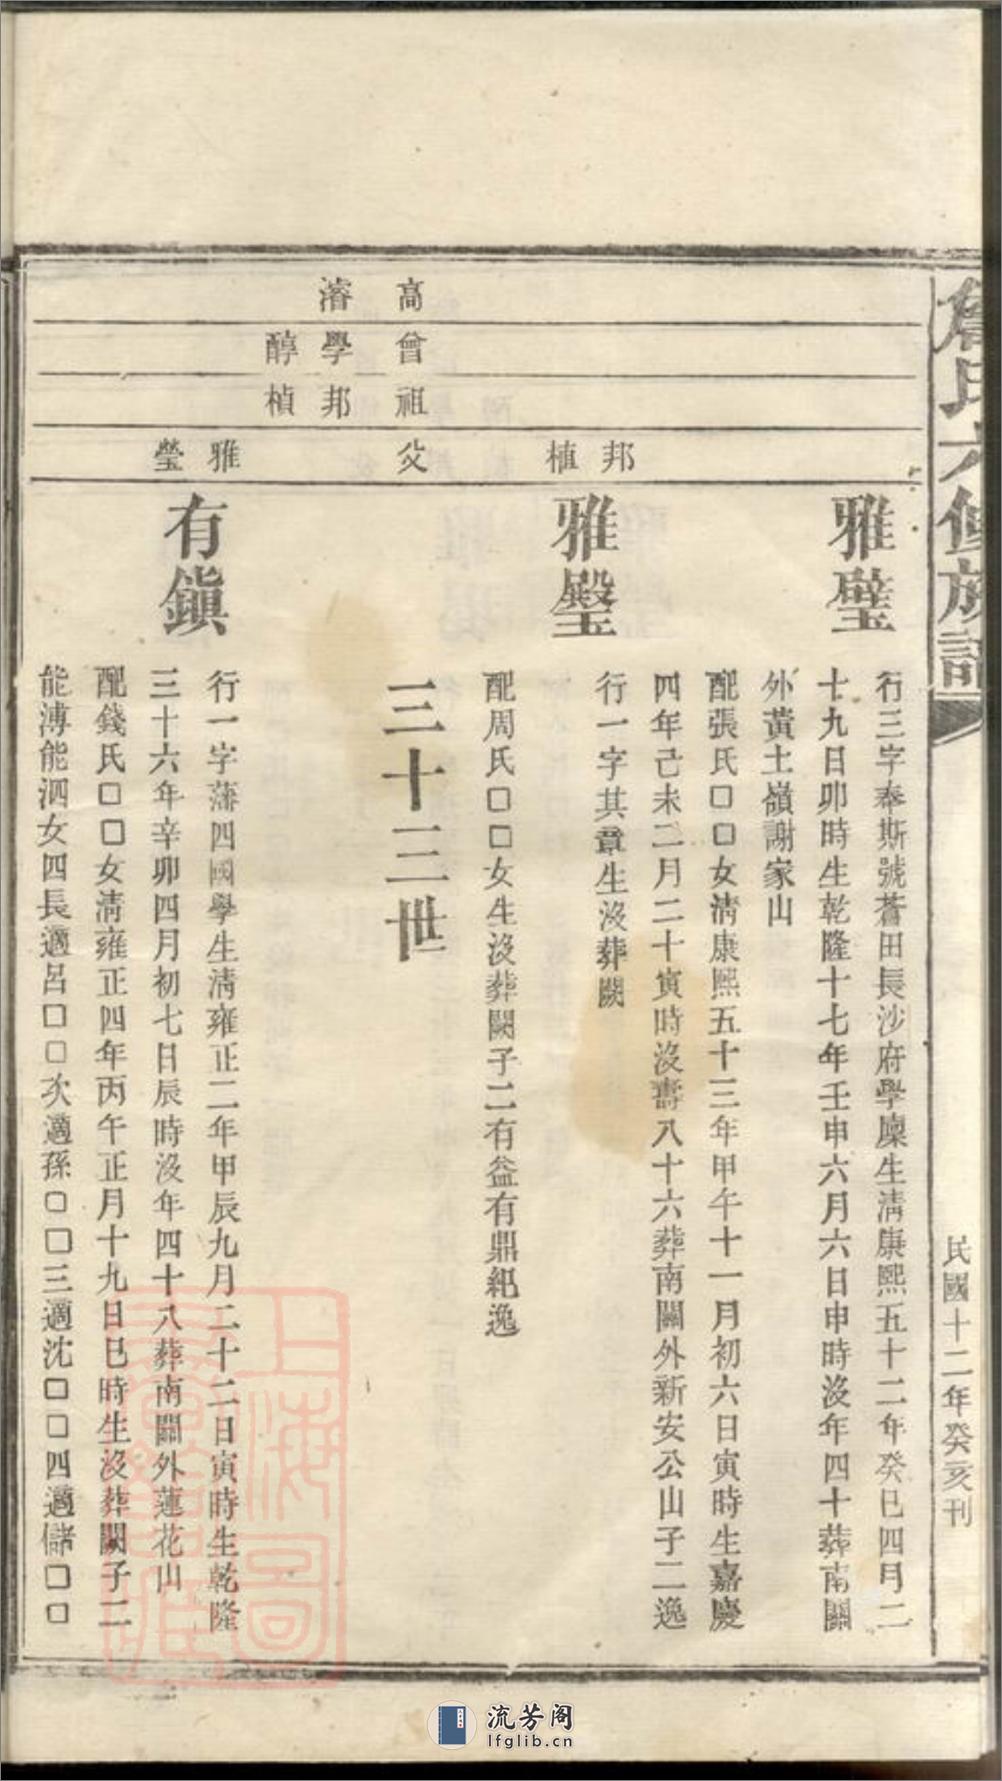 詹氏六修族譜
民國十二年癸亥刊
雅璧
行三字奉斯號蒼田長沙府學廩生淸康熙五十二年癸巳四月二
十九日卯時生乾隆十七年壬申六月六日申時沒年四十葬南關
外黃土嶺謝家山
配張氏□□女淸康熙五十三年甲午十一月初六日寅時生嘉慶
四年己未二月二十寅時沒壽八十六葬南關外新安公山子二逸
邦植
雅瑿
行一字其章生沒葬闕
配周氏□□女生沒葬闕子二有益有鼎紀逸
高
曾
祖
父
三十三世
濬
學醇
邦楨
雅瑩
有鎭
行一字藩四國學生淸雍正二年甲辰九月二十二日寅時生乾隆
三十六年辛卯四月初七日辰時沒年四十八葬南關外蓮花山
配錢氏□□女淸雍正四年丙午正月十九日巳時生沒葬闕子二
能溥能泗女四長適呂□□次適孫□□三適沈□□四適儲□□
上海圖書館藏
流芳阁
lfglib.cn